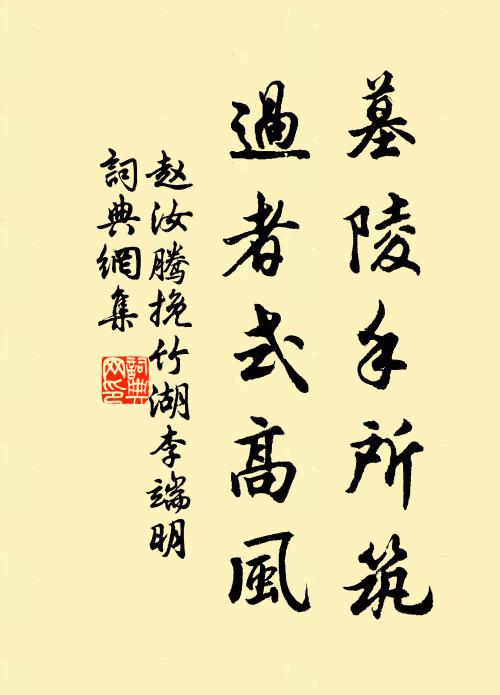 墓陵手所筑
過者式高風
赵汝腾挽竹湖李端明
詞典網集
詞典網印